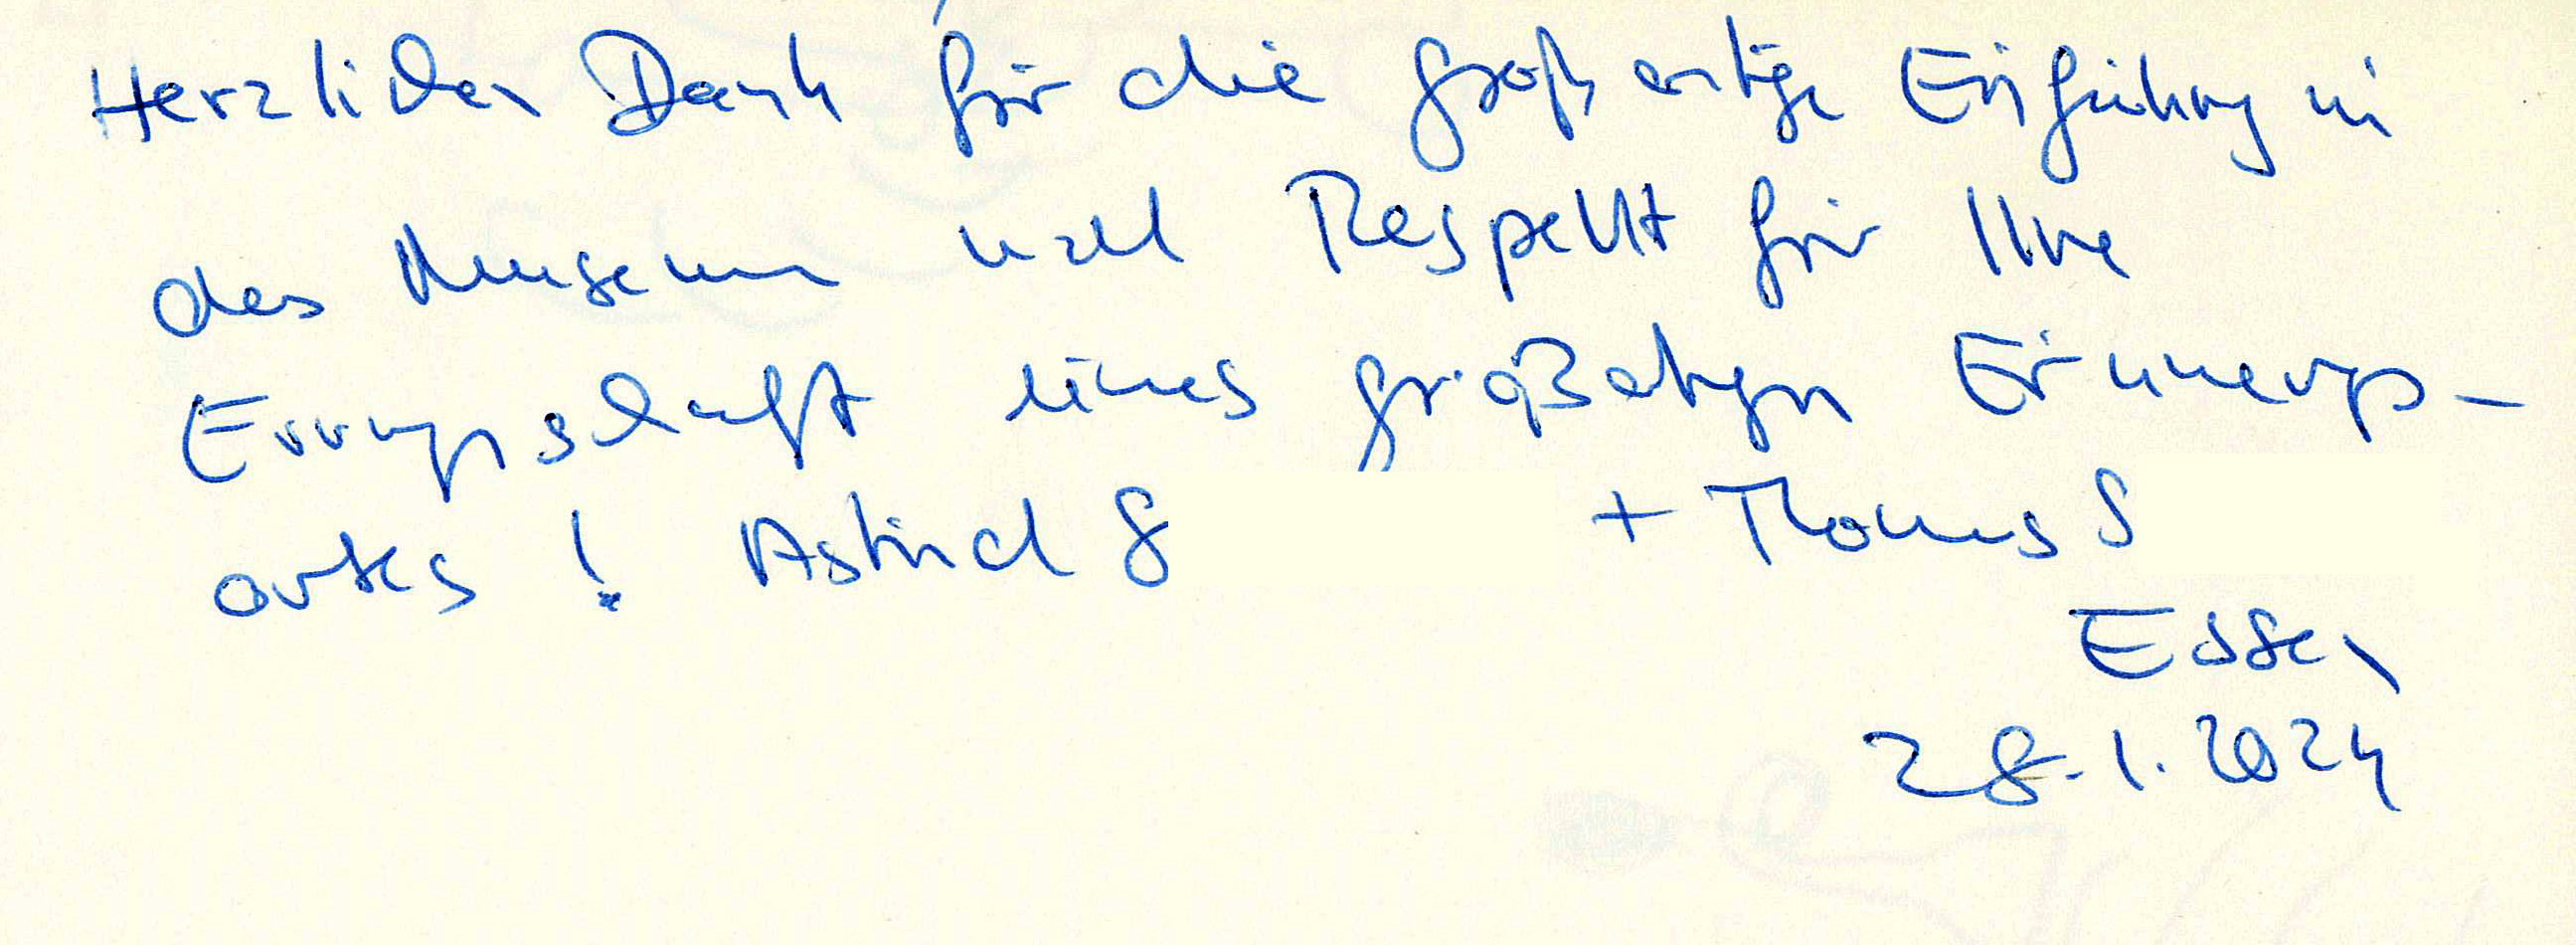 Herzlichen Dank für die großartige Einführung in
des Museum und Respekt für Ihre
Errungenschaft eines großartigen Erinnerungs-
ortes ! Astrid S
+ Thomas S
Essen
28.1.2024